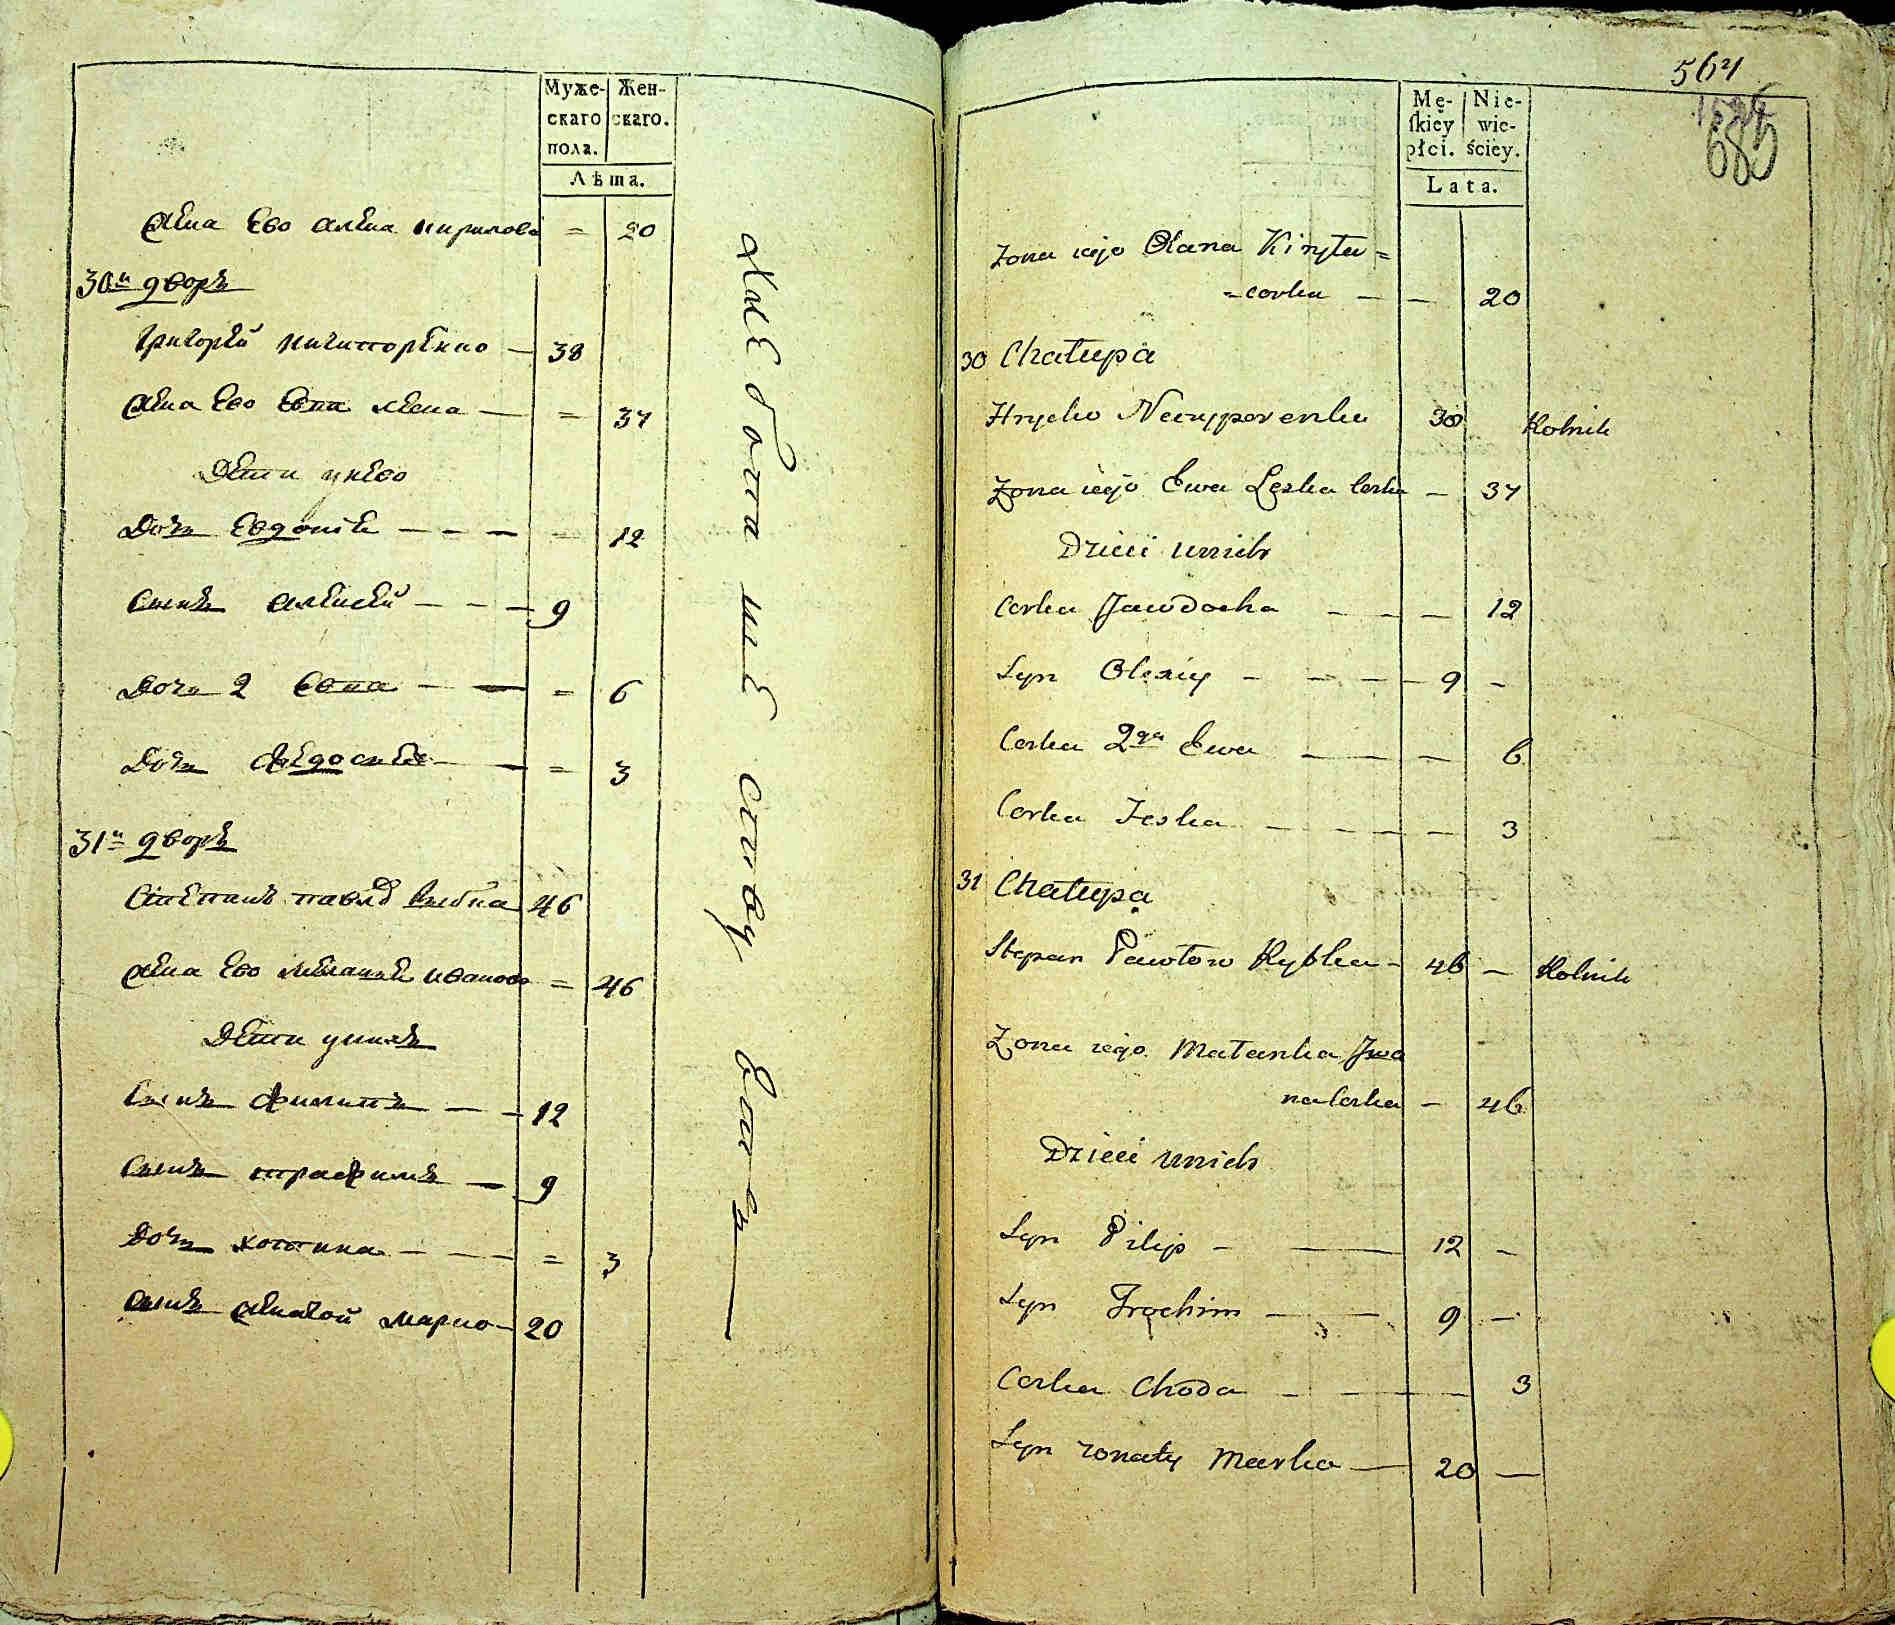 Муже- Жен-
скаго скаго.
пола.
Лѣта.
жена ево алена кирилова = 20
30й дворъ
григорей ничипоренко — 38
жена ево евва = 37
дети у нево
дочь евдокия — — — = 12
сынъ алексей — — — 9
дочь 2 евва — — = 6
дочь федосия — — = 3
31й дворъ
степанъ павлов рыбка 46
жена ево меланья иванова = 46
дети у нихъ
сынъ филипъ — — 12
сынъ трафимъ — 9
дочь хотина — — — = 3
сынъ женатой марко — 20
564
685
Mę- Nie-
ſkiey wie-
płci. ściey.
Lata.
Zona iego Olana Kiryła=
=corka — — 20
30 Chałupa
Hryćko Neczyporenko 38 Rolnik
Zona iego Ewa Leska corka — 37
Dzieci u nich
Corka Jawdocha — — — 12
Syn Olexiy — — — 9 —
Corka 2ga Ewa — — — 6
Corka Feska — — — — 3
31 Chałupa
Stepan Pawłow Rybka — 46 — Rolnik
Zona iego Małanka Iwa
na Corka — 46
Dzieci u nich
Syn Pilip — — 12 —
Syn Trochim — — 9 —
Corka Choda — — — 3
Syn zonaty Marko — 20 —